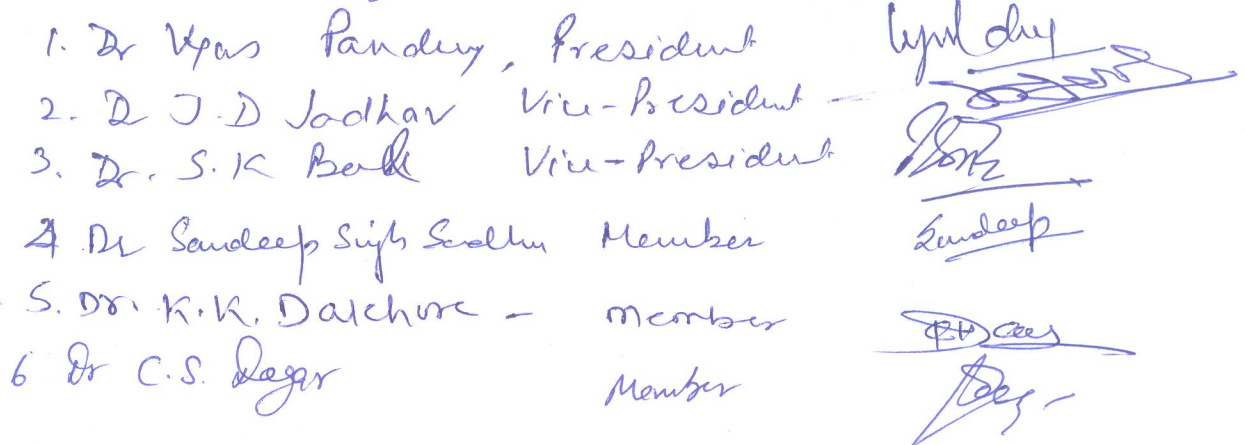 1. Dr Vyas Pandey, President
2. D J.D Jadhav Vice-President -
3. Dr. S.K Bal Vice-President
4 Dr Sandeep Singh Sandhu Member Sandeep
5. Dr. K.K. Dakhore - member
6 Dr C.S. Dagar Member